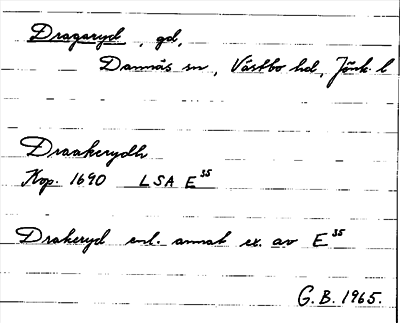 Dragaryd, gd,
Dannäs sn, Västbo hd, Jönk. l
Draakerydh
Kop. 1690 LSA E³⁵
Drakeryd enl. annat ex. av E³⁵
G. B. 1965.